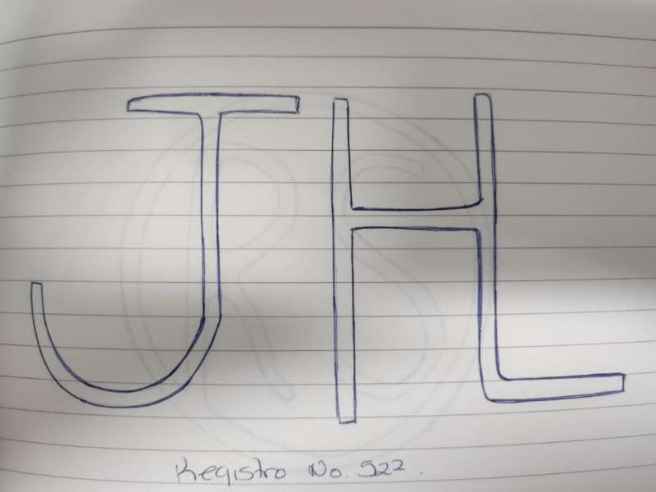 JHL
Registro No. 522.